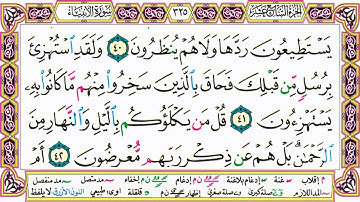 سُورَةُ الأَنْبِيَاء
٣٢٥
الجزء السابع عشر
يَسْتَطِيعُونَ رَدَّهَا وَلَا هُمْ يُنظَرُونَ ٤٠ وَلَقَدِ ٱسْتُهْزِئَ
بِرُسُلٍ مِّن قَبْلِكَ فَحَاقَ بِٱلَّذِينَ سَخِرُوا۟ مِنْهُم مَّا كَانُوا۟ بِهِۦ
يَسْتَهْزِءُونَ ٤١ قُلْ مَن يَكْلَؤُكُم بِٱلَّيْلِ وَٱلنَّهَارِ مِنَ
ٱلرَّحْمَٰنِ ۗ بَلْ هُمْ عَن ذِكْرِ رَبِّهِم مُّعْرِضُونَ ٤٢ أَمْ